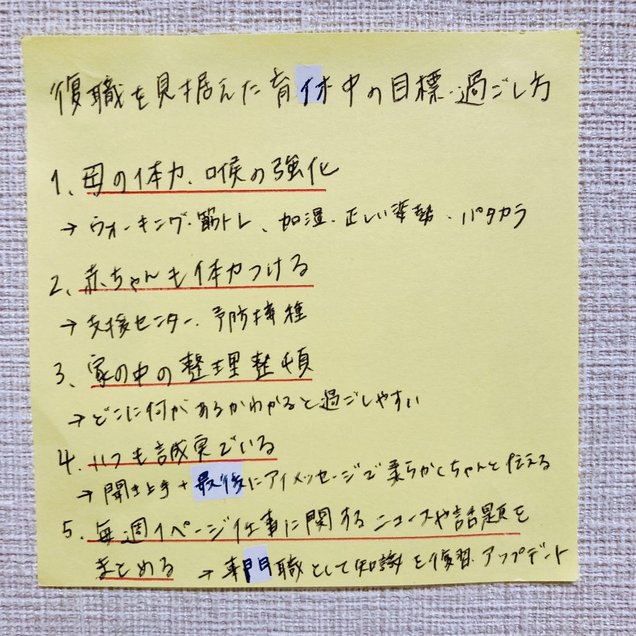 復職を見据えた育休中の目標・過ごし方
1、母の体力、喉の強化
→ウォーキング・筋トレ、加湿・正しい姿勢、パタカラ
2、赤ちゃんも体力つける
→支援センター、予防接種
3、家の中の整理整頓
→どこに何があるかわかると過ごしやすい
4、いつも誠実でいる
→聞き上手+最後にアイメッセージで柔らかくちゃんと伝える
5、毎週1ページ仕事に関するニュースや話題を
まとめる →専門職として知識を復習、アップデート